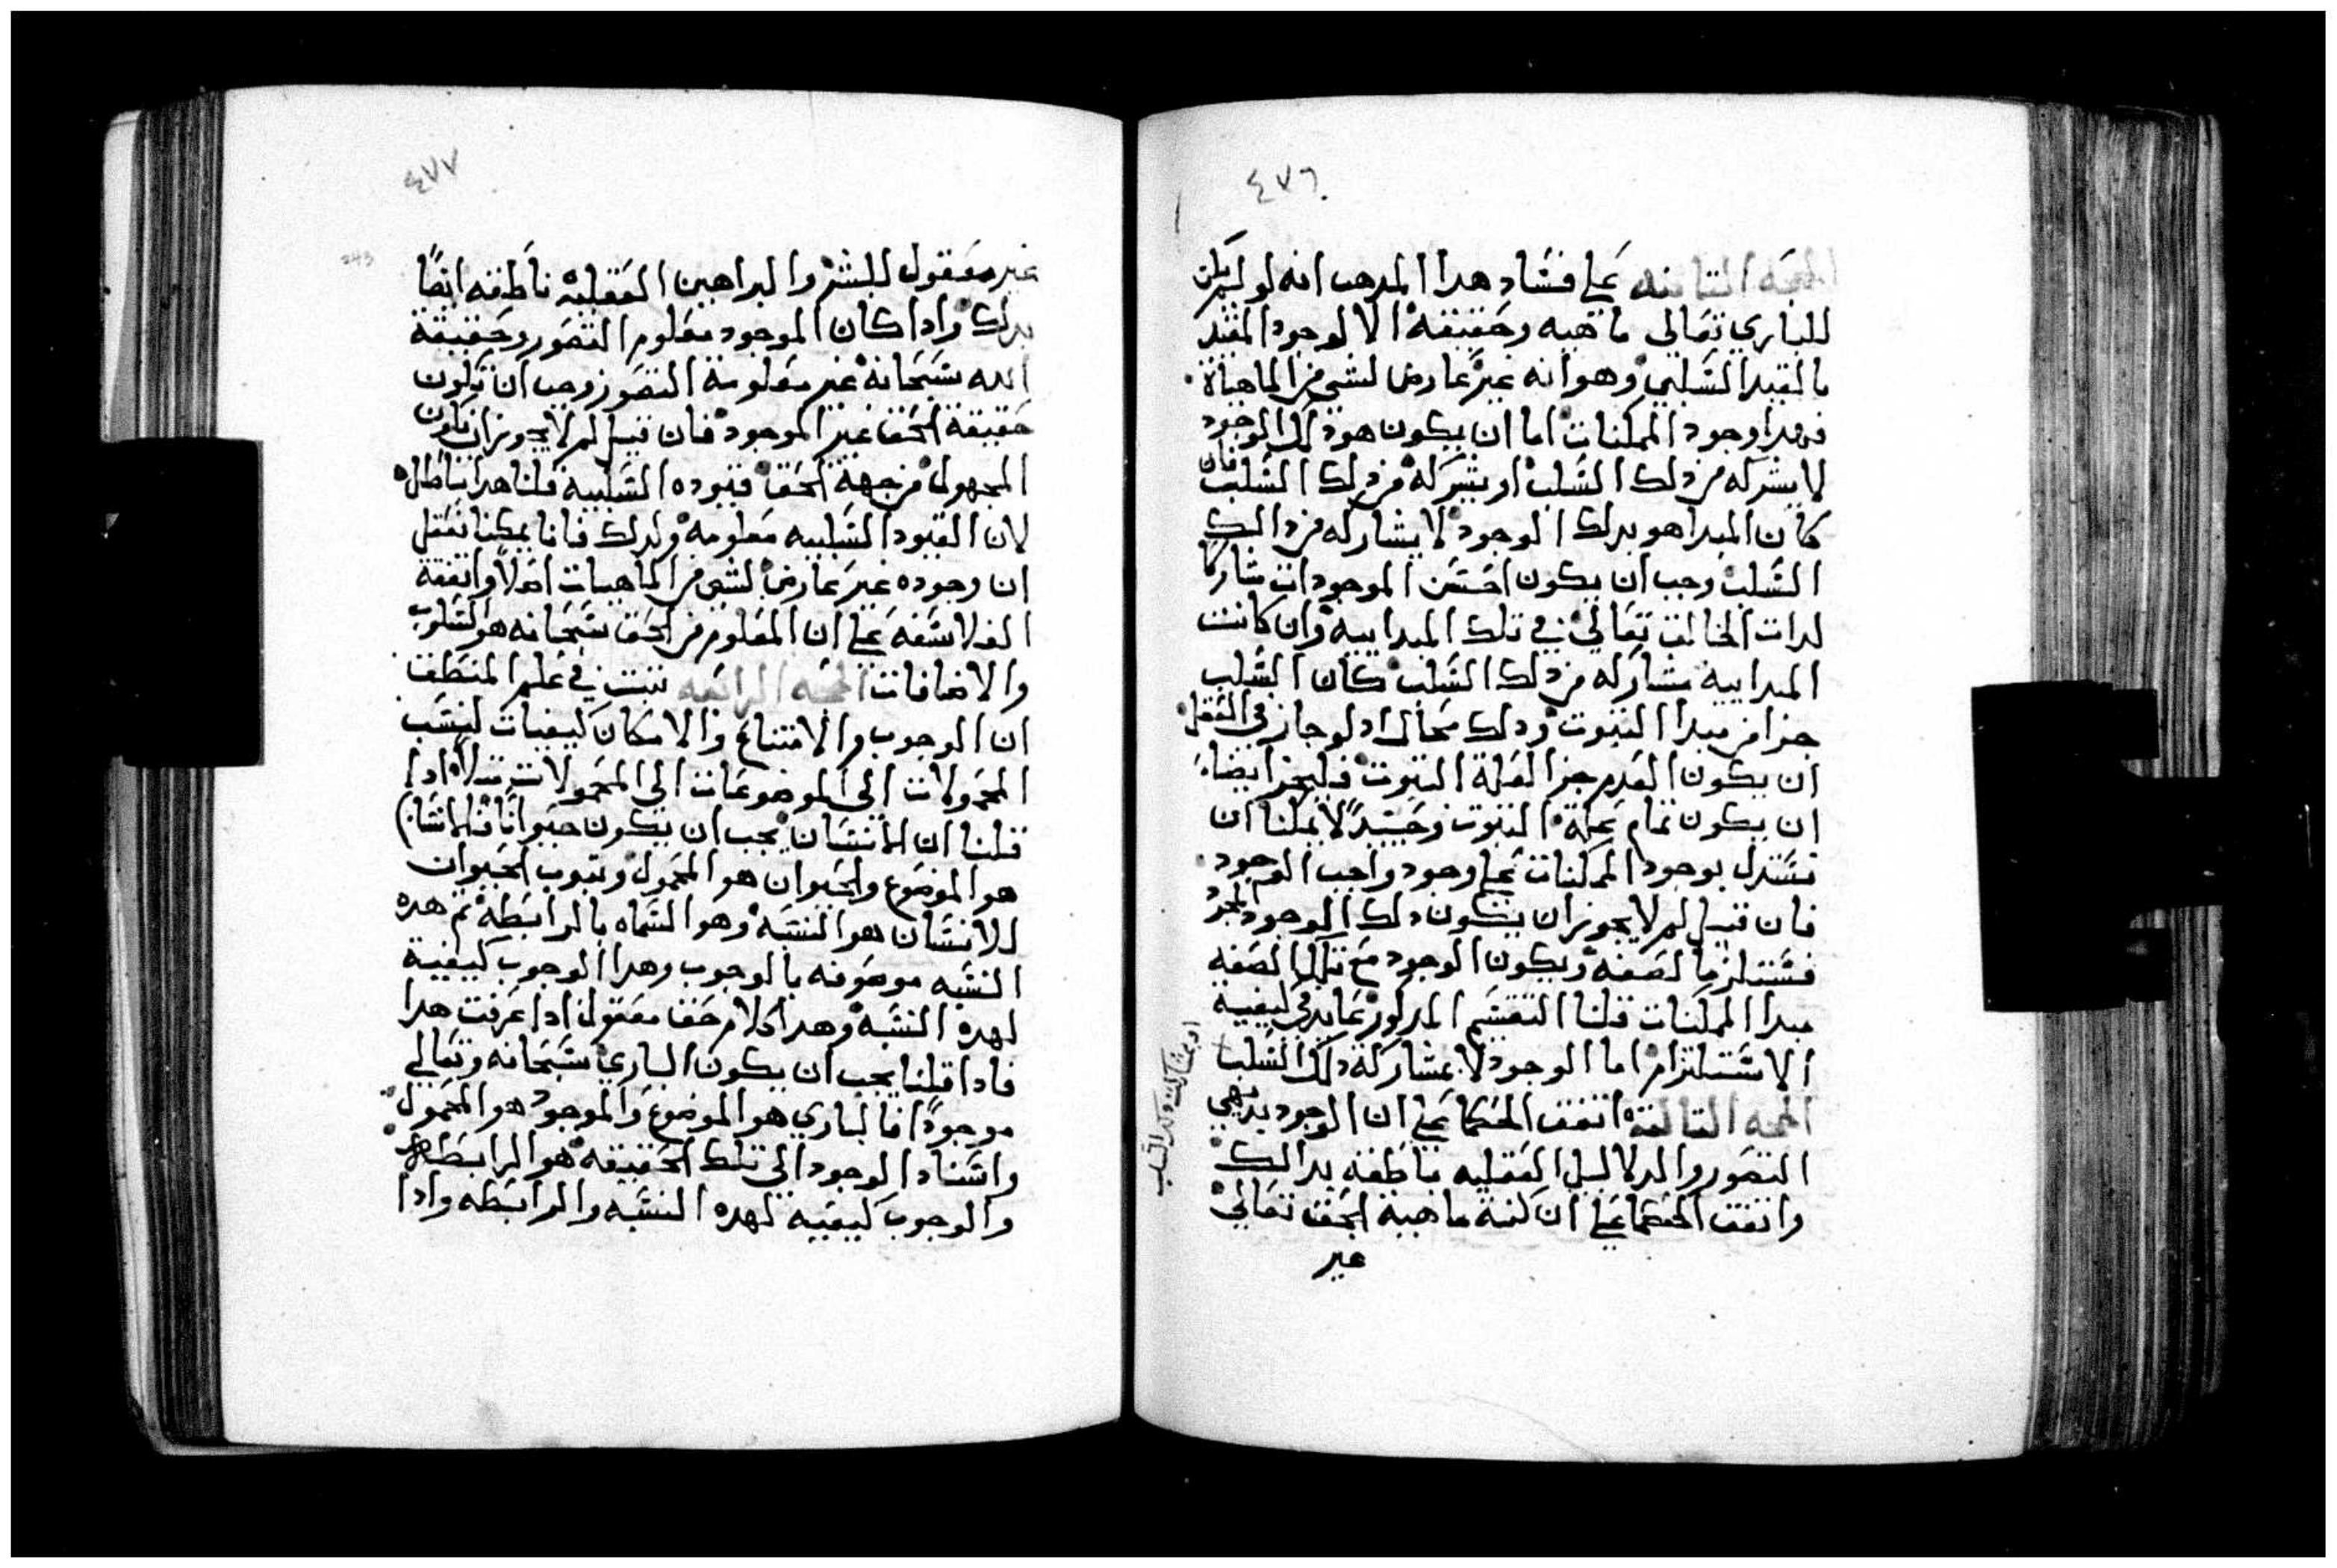 ٤٧٦
الحجه الثانيه علي فساد هدا المدهب انه لو لم يكن
للباري تعالي ماهيه وحقيقة الا الوجود المقيد
بالقيد السلبي وهو انه غير عارض لشي من الماهياة
فمبدا وجود الممكنات اما ان يكون هو دلك الموجود
لا يشركه من دلك السلب او يشركة من دلك السلب فان
كان المبدا هو بدلك الوجود لا يشاركه من دالك
السلب وجب ان يكون اخسن الموجودات مشاركا
لدات الخالق تعالي في تلك المبداييه وان كانت
المبداييه مشاركه من دلك السلب كان السلب
جزا من مبدا الثبوت ودلك محال اد لو جاز في العقل
ان يكون العدم جزا لعلة الثبوت فليجز ايضا
ان يكون تمام علة الثبوت وحينيدً لا يمكنا ان
نستدل بوجود الممكنات علي وجود واجب الوجود
فان قيل لم لا يجوز ان يكون دلك الوجود المجرد
فستلزما لصفة ويكون الوجود مع تلك الصفه
مبدا الممكنات قلنا التقسيم المدكور عايد في كيفية
الاستلزام اما الوجود لا بمشاركة دلك السلب
او بمشاركت دلك السلب
الحجه التالتة اتفق الحكما علي ان الوجود بديهي
التصور والدلايل العقليه ناطقه بدالك
واتفق الحكما علي ان كنة ماهية الحق تعالي
غير
٤٧٧
243
غير معقول للبشر والبراهين العقلية ناطقه ايضًا
بدلك وادا كان الموجود معلوم التصور وحقيقة
الله سبحانه غير معلومة التصور وجب ان تكون
حقيقة الحق غير الموجود فان قيل لم لا يجوز ان تكون
المجهول من جهة الحق قيوده السلبية قلنا هدا باطل
لان القيود السلبيه معلومه ولدلك فانا يمكنا نعقل
ان وجوده غير عارض لشي من الماهيات اصلاً واتفقة
الفلاسفه علي ان المعلوم من الحق سبحانه هو السلوب
والاضافات الحجه الرابعه ثبت في علم المنطق
ان الوجوب والامتناع والامكان كيفيات لنسب
المحمولات الي الموضوعات الي المحمولات مثلا ادا
قلنا ان الانسان يجب ان يكون حيوانًا فالانسان
هو الموضوع والحيوان هو المحمول وثبوب الحيوان
للانسان هو النسبه وهو السماه بالرابطه ثم هده
النسبه موصوفه بالوجوب وهدا الوجوب كيفية
لهده النسبة وهدا كلام حق معقول ادا عرفت هدا
فادا قلنا يجب ان يكون الباري سبحانه وتعالي
موجودًا فالباري هو الموضوع والموجود هو المحمول
واسناد الوجود الي تلك الحقيقه هو الرابطه
والوجوب كيفيه لهده النسبه والرابطه وادا